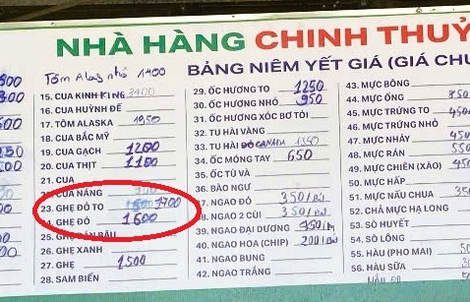 NHÀ HÀNG CHINH THUỶ
Tôm Alas nhỏ 1400
BẢNG NIÊM YẾT GIÁ (GIÁ CHƯ
15. CUA KINH KING 3400
16. CUA HUỲNH ĐẾ
17. TÔM ALASKA 1950
18. CUA BẮC MỸ
19. CUA GẠCH 1200
20. CUA THỊT 1100
21. CUA
CUA NÀNG
23. GHẸ ĐỎ TO 1700
GHẸ ĐỎ 1600
GHẸ
26. GHẸ XANH
27. GHẸ 1500
28. SAM BIỂN
29. ỐC HƯƠNG TO 1250
30. ỐC HƯƠNG NHỎ 950
31. ỐC HƯƠNG XÓC BƠ TỎI
32. TU HÀI VÀNG
33. TU HÀI ĐỎ CANADA 1350
34. ỐC MÓNG TAY 650
35. ỐC TÙ VÀ
36. BÀO NGƯ
37. NGAO ĐỎ 350
38. NGAO 2 CÙI 350
39. NGAO ĐẠI DƯƠNG 450
40. NGAO HOA (CHIP) 200
41. NGAO BUNG
42. NGAO TRẮNG
43. MỰC BÔNG
44. MỰC ỐNG 850
45. MỰC TRỨNG TO 450
46. MỰC TRỨNG NHỎ
47. MỰC NHÁY
48. MỰC RÁN 550
49. MỰC CHIÊN (XÀO) 450
50. MỰC HẤP
51. MỰC NẤU CHUA 350
52. CHẢ MỰC HẠ LONG
53. SÒ HUYẾT
54. SÒ LÔNG
55. HÀU (PHO MAI) 50
56. HÀU SỮA